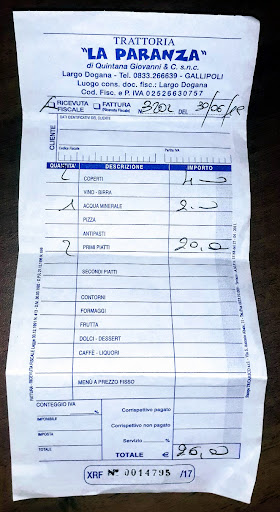 TRATTORIA
"LA PARANZA"
di Quintana Giovanni & C. s.n.c.
Largo Dogana - Tel. 0833.266639 - GALLIPOLI
Luogo cons. doc. fisc.: Largo Dogana
Cod. Fisc. e P. IVA 02526630757
RICEVUTA FISCALE FATTURA (Ricevuta Fiscale) N. 3202 del 30/06/18
CLIENTE
DATI IDENTIFICATIVI DEL CLIENTE
Codice Fiscale Partita IVA
QUANTITA' DESCRIZIONE IMPORTO
2 COPERTI 4,00
VINO - BIRRA
1 ACQUA MINERALE 2,00
PIZZA
ANTIPASTI
2 PRIMI PIATTI 20,00
SECONDI PIATTI
CONTORNI
FORMAGGI
FRUTTA
DOLCI - DESSERT
CAFFÈ - LIQUORI
MENÙ A PREZZO FISSO
CONTEGGIO IVA Corrispettivo pagato
IMPONIBILE
Corrispettivo non pagato
IMPOSTA
Servizio
TOTALE TOTALE € 26,00
XRF N° 0014795 /17